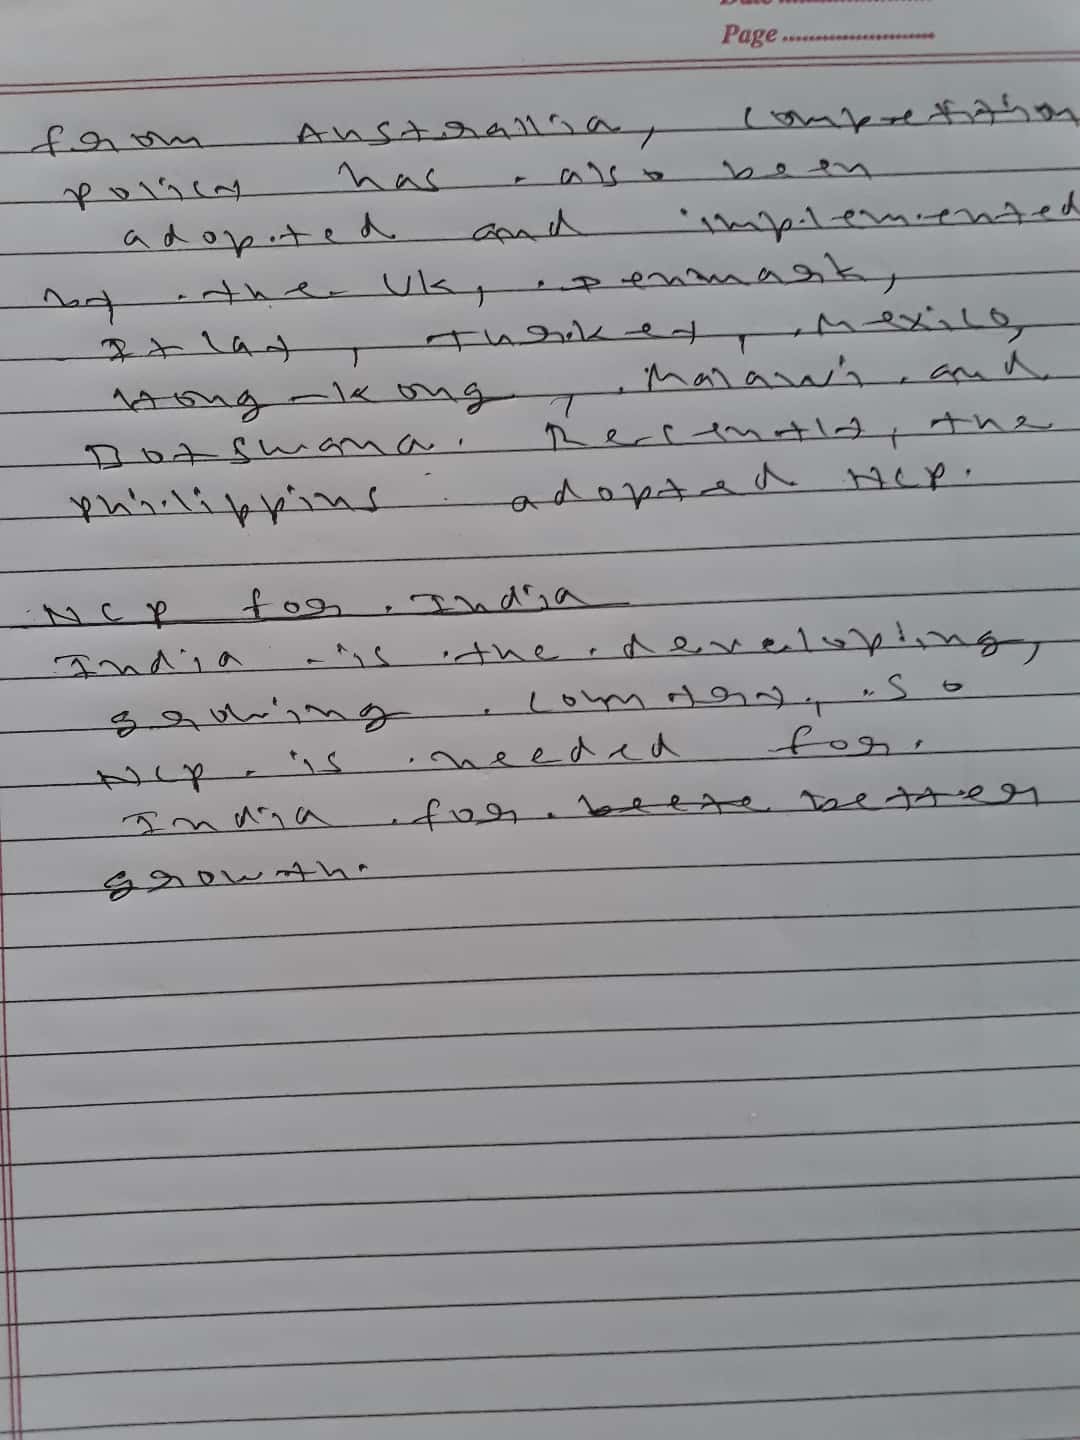 Page
from Australia, Competition
policy has also been
adopted and implemented
by the UK, Denmark,
Italy, Turkey, Mexico,
Hong-kong, Malawi and
Botswana. Recently, the
philippins adopted NCP.
NCP for India
India is the developing,
growing country, so
NCP is needed for
India for better
growth.